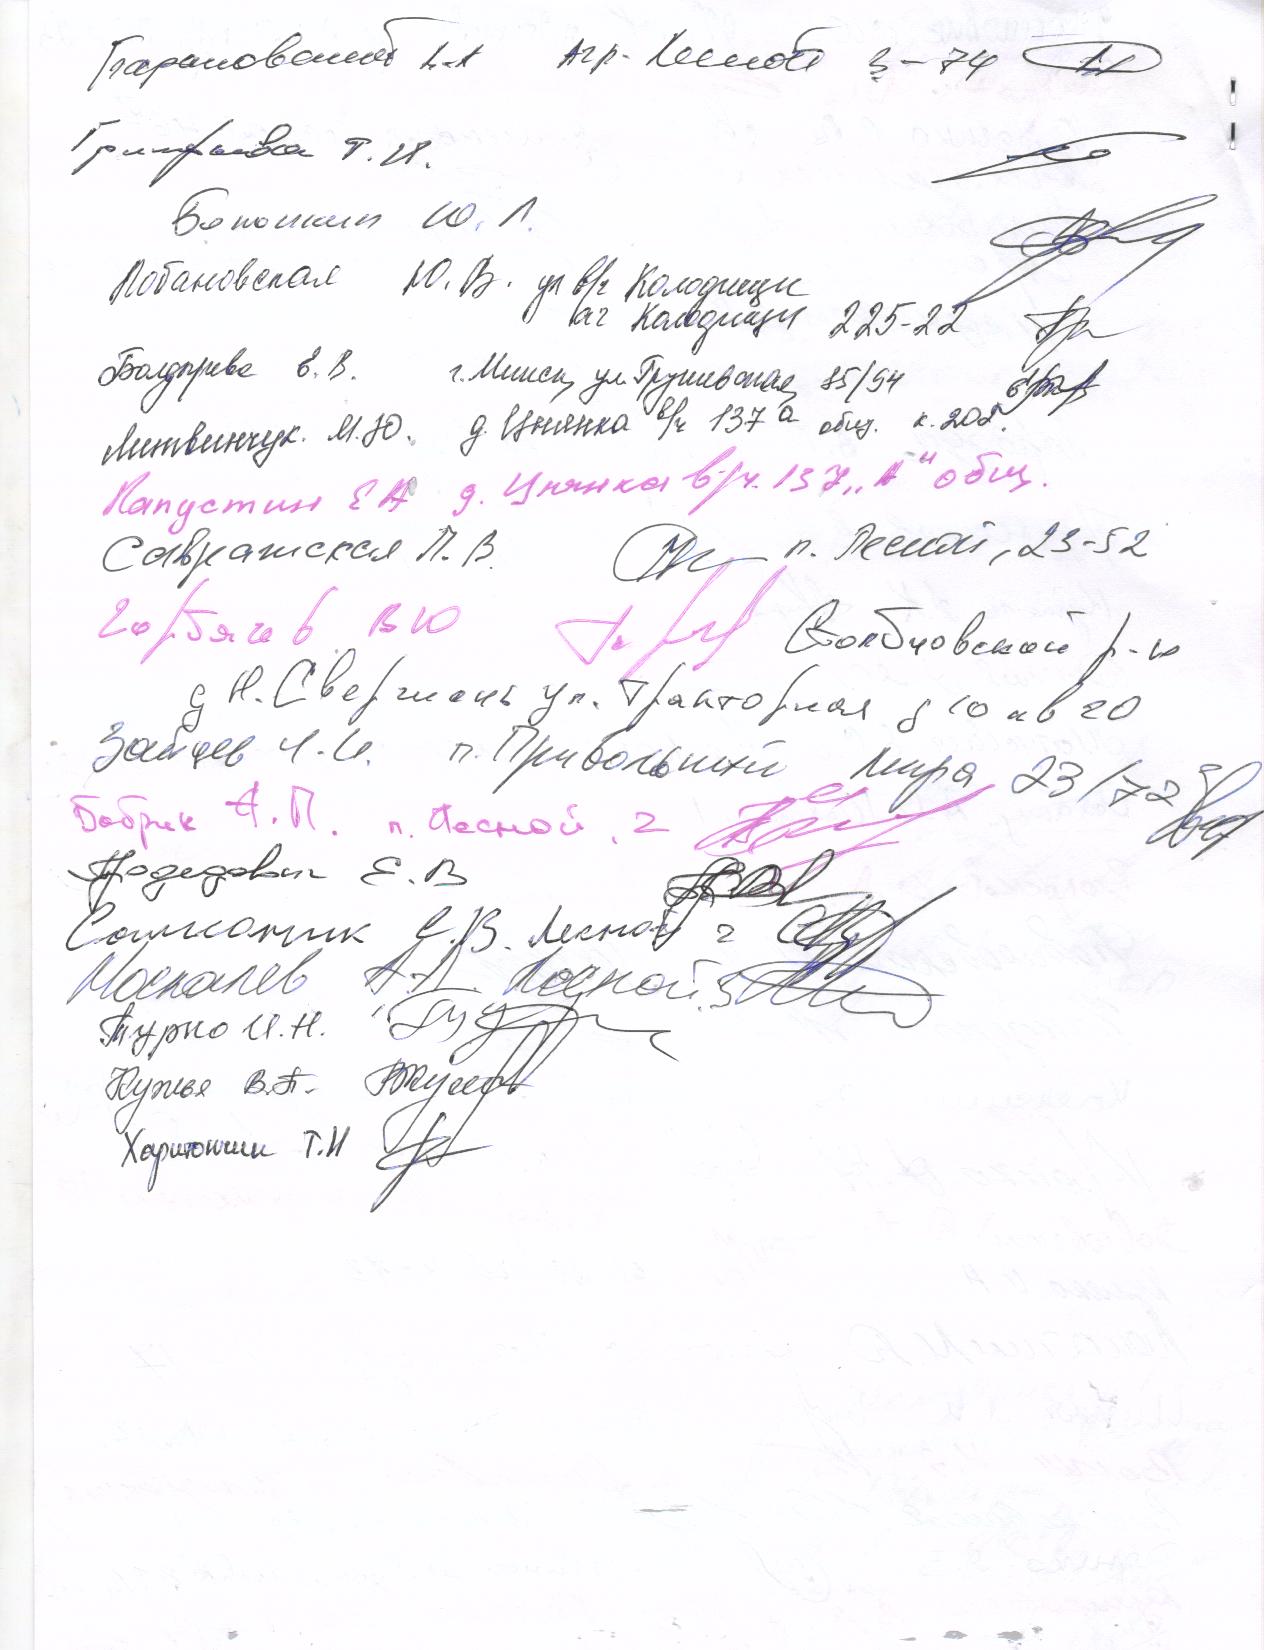 Барановский А.А агр. Лесной 3-74
Т.И.
Ю.Л.
Лобановская Ю.В. ул в/ч Колодищи
аг Колодищи 225-22
Болдырева Е.В. г. Минск, ул. Грушевская, 85/94
Литвинчук М.Ю. д. Цнянка в/ч 137а общ. к.202.
Капустин Е А д. Цнянка в/ч. 137 „А" общ.
Савратская Л.В. п. Лесной, 23-52
Горбачев В Ю Столбцовской р-н
д Н.Свержень ул. Тракторная д 10 кв 20
Зайцев И.И. п. Привольный Мира 23/72
Бобрик А.П. п. Лесной, 2
Е.В
С.В. Лесной 2
Москалев А.А. Лесной. 3
Турко И.Н.
Кужья В.П.
Харитончик Т.И